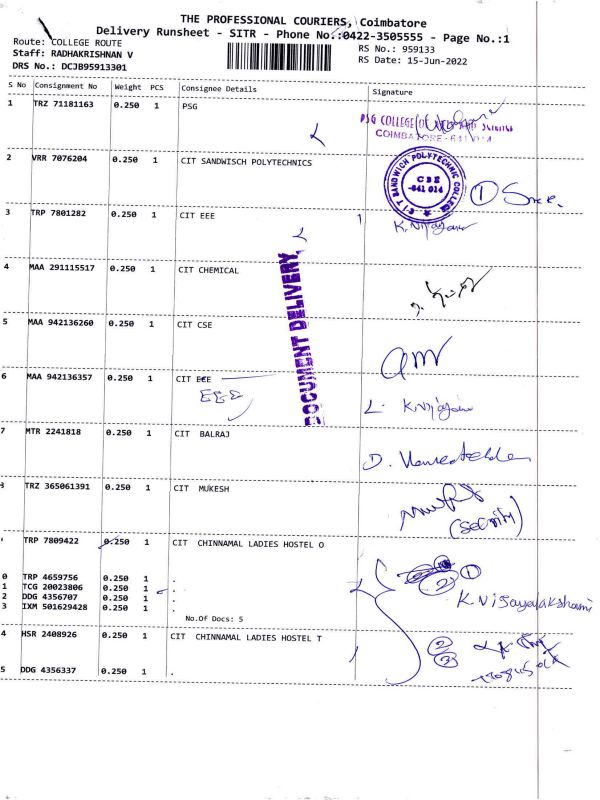 THE PROFESSIONAL COURIERS, Coimbatore
Delivery Runsheet - SITR - Phone No.:0422-3505555 - Page No.:1
Route: COLLEGE ROUTE
RS No.: 959133
Staff: RADHAKRISHNAN V
RS Date: 15-Jun-2022
DRS No.: DCJB95913301
S No Consignment No Weight PCS Consignee Details Signature
1 TRZ 71181163 0.250 1 PSG
PSG COLLEGE
COIMBATORE-641 014
2 VRR 7076204 0.250 1 CIT SANDWISCH POLYTECHNICS
CIT SANDWICH POLYTECHNIC COLLEGE
CBE
-641 014
1
3 TRP 7801282 0.250 1 CIT EEE
4 MAA 291115517 0.250 1 CIT CHEMICAL
DOCUMENT DELIVERY
5 MAA 942136260 0.250 1 CIT CSE
6 MAA 942136357 0.250 1 CIT ECE
EEE
7 MTR 2241818 0.250 1 CIT BALRAJ
TRZ 365061391 0.250 1 CIT MUKESH
(Security)
TRP 7809422 0.250 1 CIT CHINNAMAL LADIES HOSTEL O
0 TRP 4659756 0.250 1 .
1 TCG 20023806 0.250 1 .
2 DDG 4356707 0.250 1 .
3 IXM 501629428 0.250 1 .
No.Of Docs: 5
4 HSR 2408926 0.250 1 CIT CHINNAMAL LADIES HOSTEL T
5 DDG 4356337 0.250 1 .